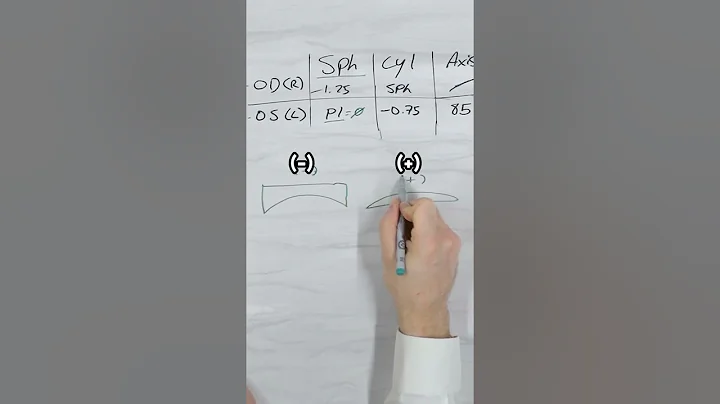 Sph Cyl Axis
OD(R) -1.25 SPh
OS(L) Pl=∅ -0.75 85
(-) (+)
+)